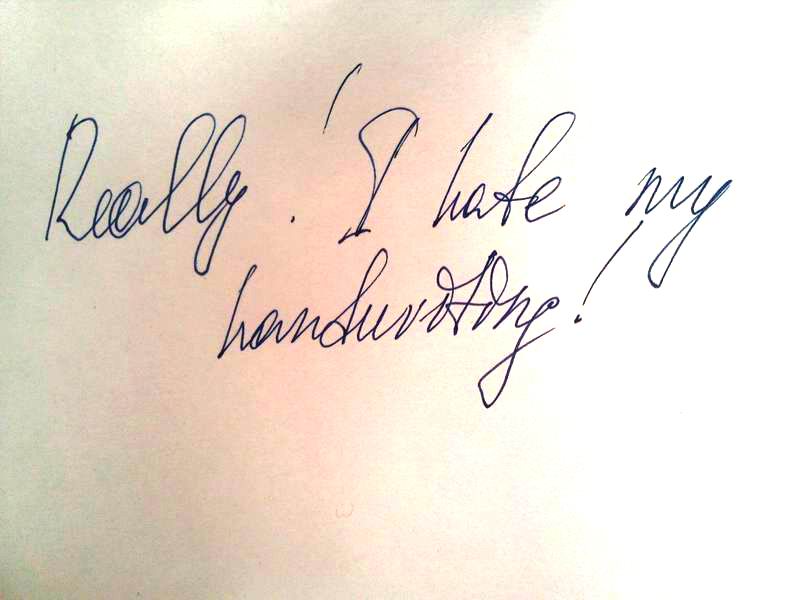 Really! I hate my
handwriting!